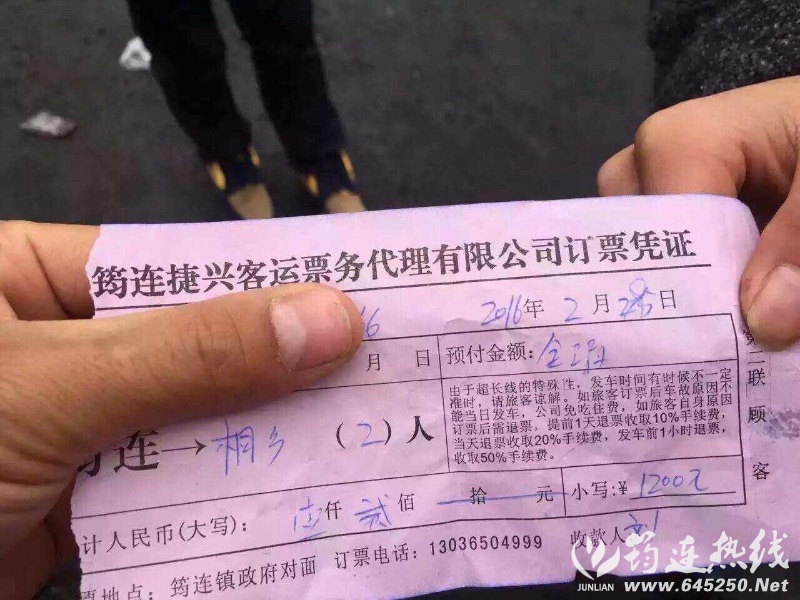 筠连捷兴客运票务代理有限公司订票凭证
16 2016年2月28日
月 日 预付金额:全
由于超长线的特殊性，发车时间有时候不一定
准时，请旅客谅解。如旅客订票后车故原因不
能当日发车，公司免吃住费，如旅客自身原因
订票后需退票，提前1天退票收取10%手续费，
当天退票收取20%手续费，发车前1小时退票，
收取50%手续费。
连→桐乡 (2)人
计人民币(大写): 壹仟贰佰 拾 元 小写:¥ 1200元
票地点: 筠连镇政府对面 订票电话: 13036504999 收款人
第二联 顾客
筠连热线
JUNLIAN www.645250.Net